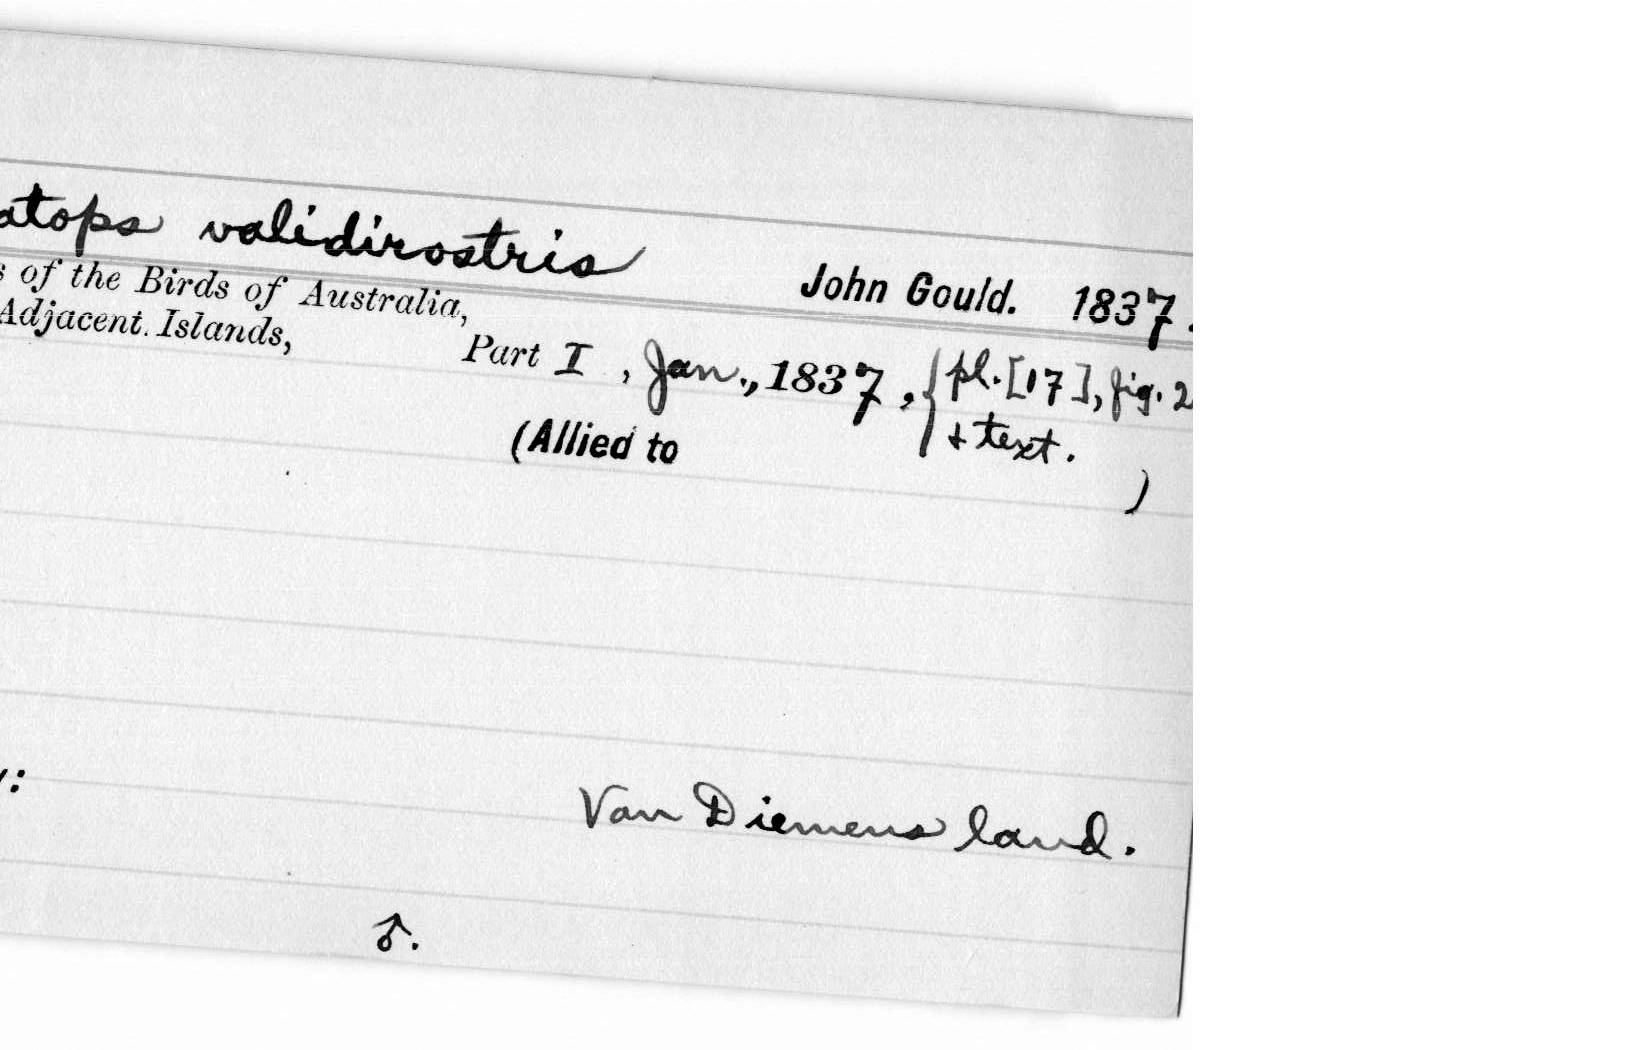 atops validirostris John Gould. 1837.
s of the Birds of Australia,
Adjacent Islands, Part I, Jan., 1837, { pl. [17], fig. 2
& text.
(Allied to )
y: Van Diemens land.
♂.